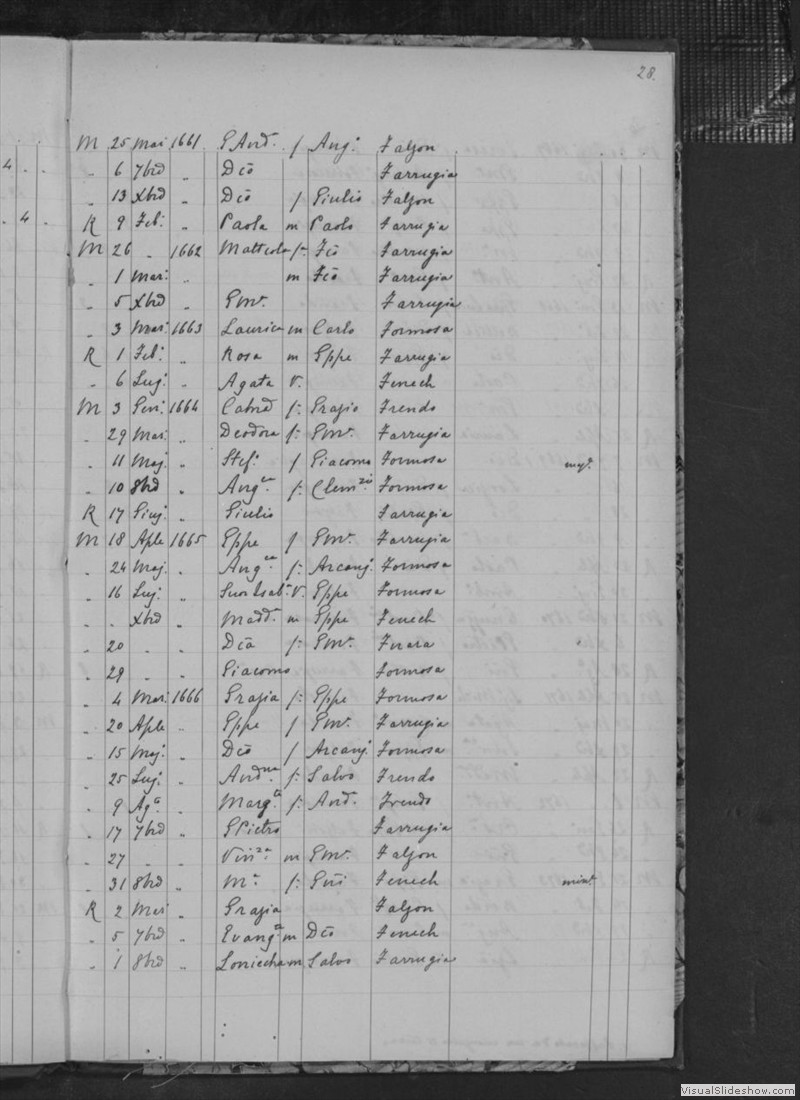 28.
M 25 Mai 1661 GAnd.ª f Ang.º Falzon
4 . . „ 6 7brd „ Dcō Farrugia
„ 13 Xbrd „ Dcō f Giulio Falzon
. 4 . R 9 Feb.º „ Paola m Paolo Farrugia
M 26 „ 1662 Mattcola f.ª Fcō Farrugia
„ 1 Mar: m Fcō Farrugia
„ 5 Xbrd „ Gmª. Farrugia
„ 3 Mar: 1663 Laurica m Carlo Formosa
R 1 Feb.º „ Rosa m Gppe Farrugia
„ 6 Lug. „ Agata V. Fenech
M 3 Gen: 1664 Catrd f: Grazio Frendo
„ 29 Mar: „ Deodora f: Gmª. Farrugia
„ 11 Maj. „ Stef.º f Giacomo Formosa
„ 10 8brd „ Ang.ca f: Clem. Formosa
R 17 Giug. „ Giulio Farrugia
M 18 Aple 1665 Gppe f Gmª. Farrugia
„ 24 Maj. „ Ang.ca f: Arcang.º Formosa
„ 16 Lug. „ V. Gppe Formosa
„ . Xbrd „ Madd.ª m Gppe Fenech
„ 20 . . Dcā f: Gmª. Furara
„ 29 . . Giacomo Formosa
„ 4 Mar: 1666 Grazia f: Gppe Formosa
„ 20 Aple „ Gppe f Gmª. Farrugia
„ 15 Maj. „ Dcō f Arcang.º Formosa
„ 25 Lug. „ And.na f: Salvo Frendo
„ 9 Ag.º „ Marg.ta f: And.ª Frendo
„ 17 7brd „ GPietro Farrugia
„ 27 . . Vin.za m Gmª. Falzon
„ 31 8brd „ M.ª f: Gnī Fenech
R 2 Mar „ Grazia Falzon
„ 5 7brd „ Evang.ta m Dcō Fenech
„ 1 8brd „ Loniecha m Salvo Farrugia
VisualSlideshow.com